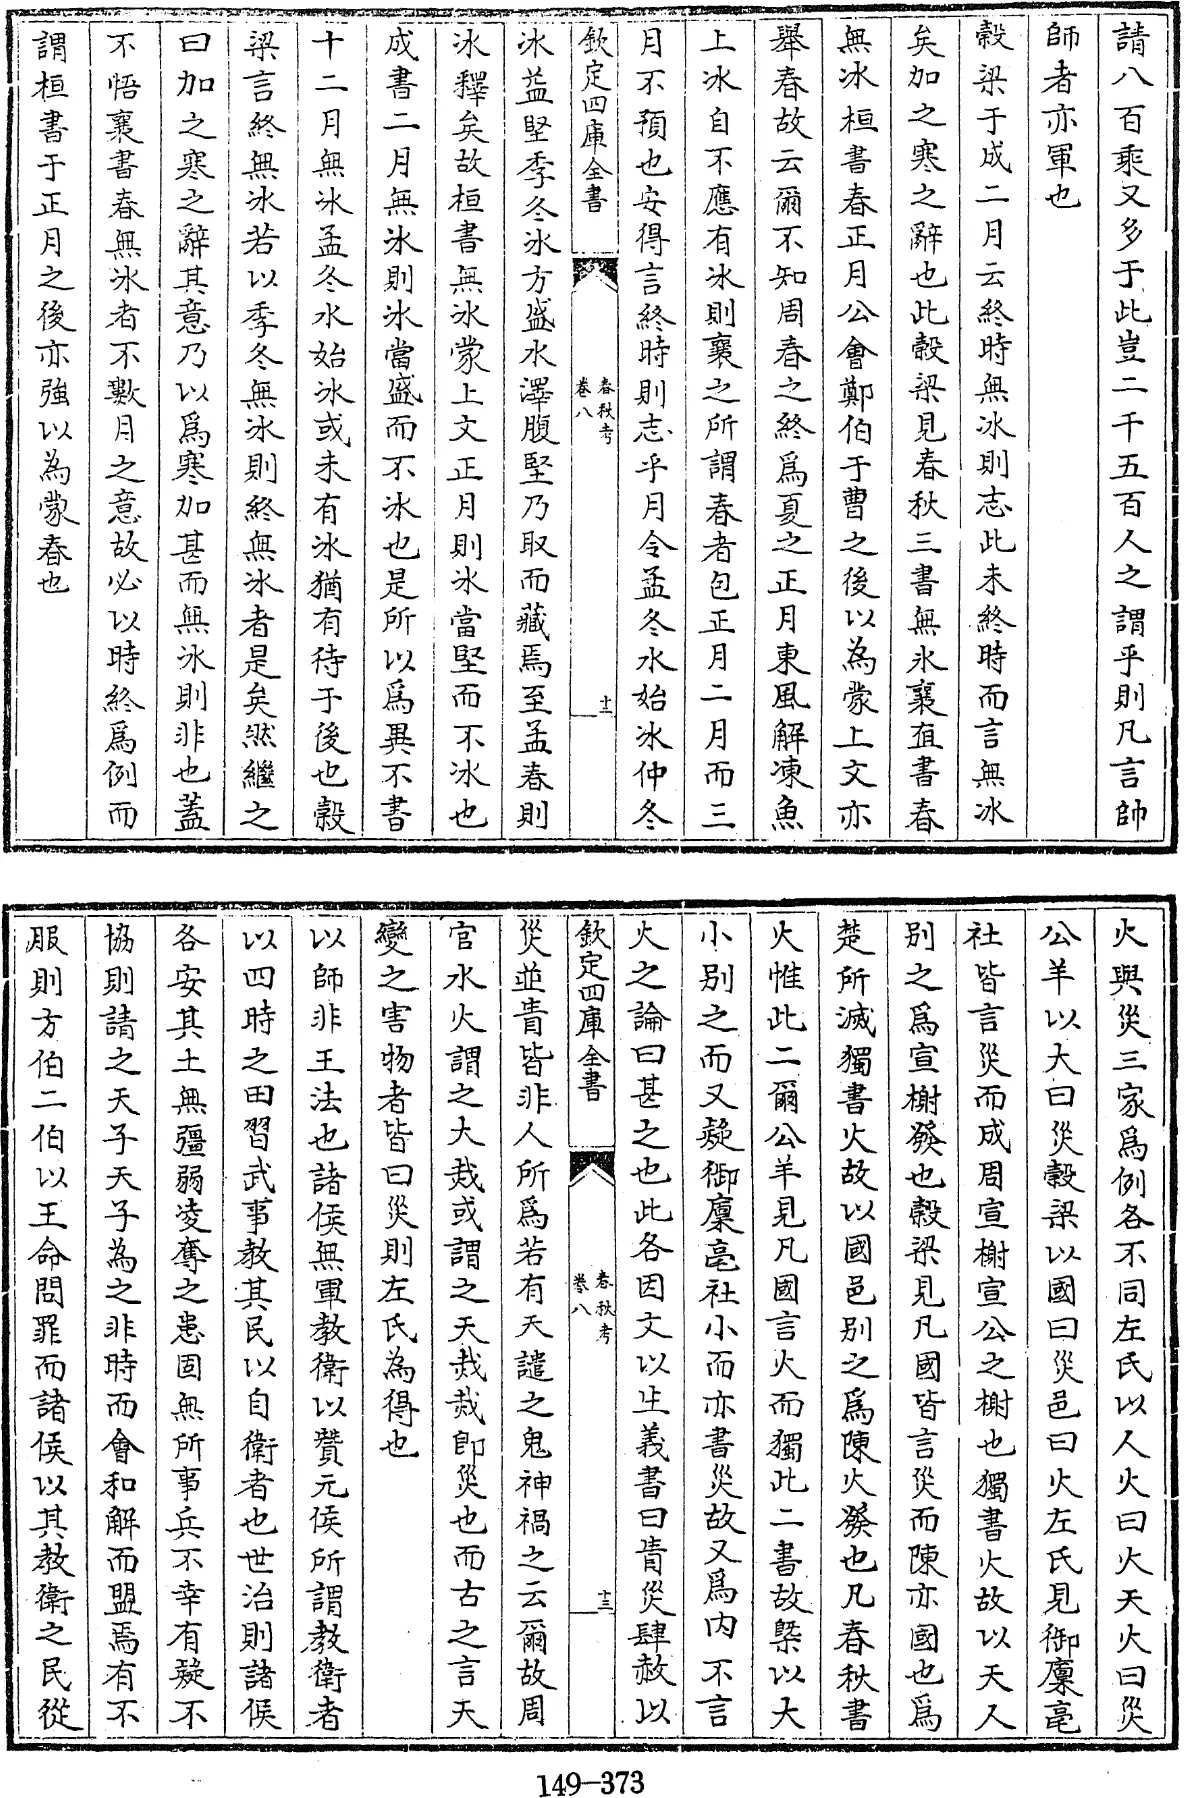 請八百乘又多于此豈二千五百人之謂乎則凡言帥
師者亦軍也
穀梁于成二月云終時無冰則志此未終時而言無冰
矣加之寒之辭也此穀梁見春秋三書無冰襄直書春
無冰桓書春正月公會鄭伯于曹之後以為蒙上文亦
舉春故云爾不知周春之終爲夏之正月東風解凍魚
上冰自不應有冰則襄之所謂春者包正月二月而三
月不預也安得言終時則志乎月令孟冬水始冰仲冬
欽定四庫全書
春秋考
卷八
十三
冰益堅季冬冰方盛水澤腹堅乃取而藏焉至孟春則
冰釋矣故桓書無冰蒙上文正月則冰當堅而不冰也
成書二月無氷則冰當盛而不冰也是所以爲異不書
十二月無冰孟冬水始冰或未有冰猶有待于後也穀
梁言終無冰若以季冬無冰則終無冰者是矣然繼之
曰加之寒之辭其意乃以爲寒加甚而無冰則非也蓋
不悟襄書春無冰者不數月之意故必以時終爲例而
謂桓書于正月之後亦強以為蒙春也
火與災三家爲例各不同左氏以人火曰火天火曰災
公羊以大曰災穀梁以國曰災邑曰火左氏見御廩亳
社皆言災而成周宣榭宣公之榭也獨書火故以天人
别之爲宣榭發也穀梁見凡國皆言災而陳亦國也爲
楚所滅獨書火故以國邑别之爲陳火發也凡春秋書
火惟此二爾公羊見凡國言火而獨此二書故槩以大
小别之而又疑御廩亳社小而亦書災故又爲内不言
火之論曰甚之也此各因文以生義書曰眚災肆赦以
欽定四庫全書
春秋考
卷八
十三
災並眚皆非人所爲若有天譴之鬼神禍之云爾故周
官水火謂之大烖或謂之天烖烖即災也而古之言天
變之害物者皆曰災則左氏為得也
以師非王法也諸侯無軍教衛以贊元侯所謂教衛者
以四時之田習武事教其民以自衛者也世治則諸侯
各安其土無彊弱凌奪之患固無所事兵不幸有疑不
協則請之天子天子為之非時而會和解而盟焉有不
服則方伯二伯以王命問罪而諸侯以其教衛之民從
149—373